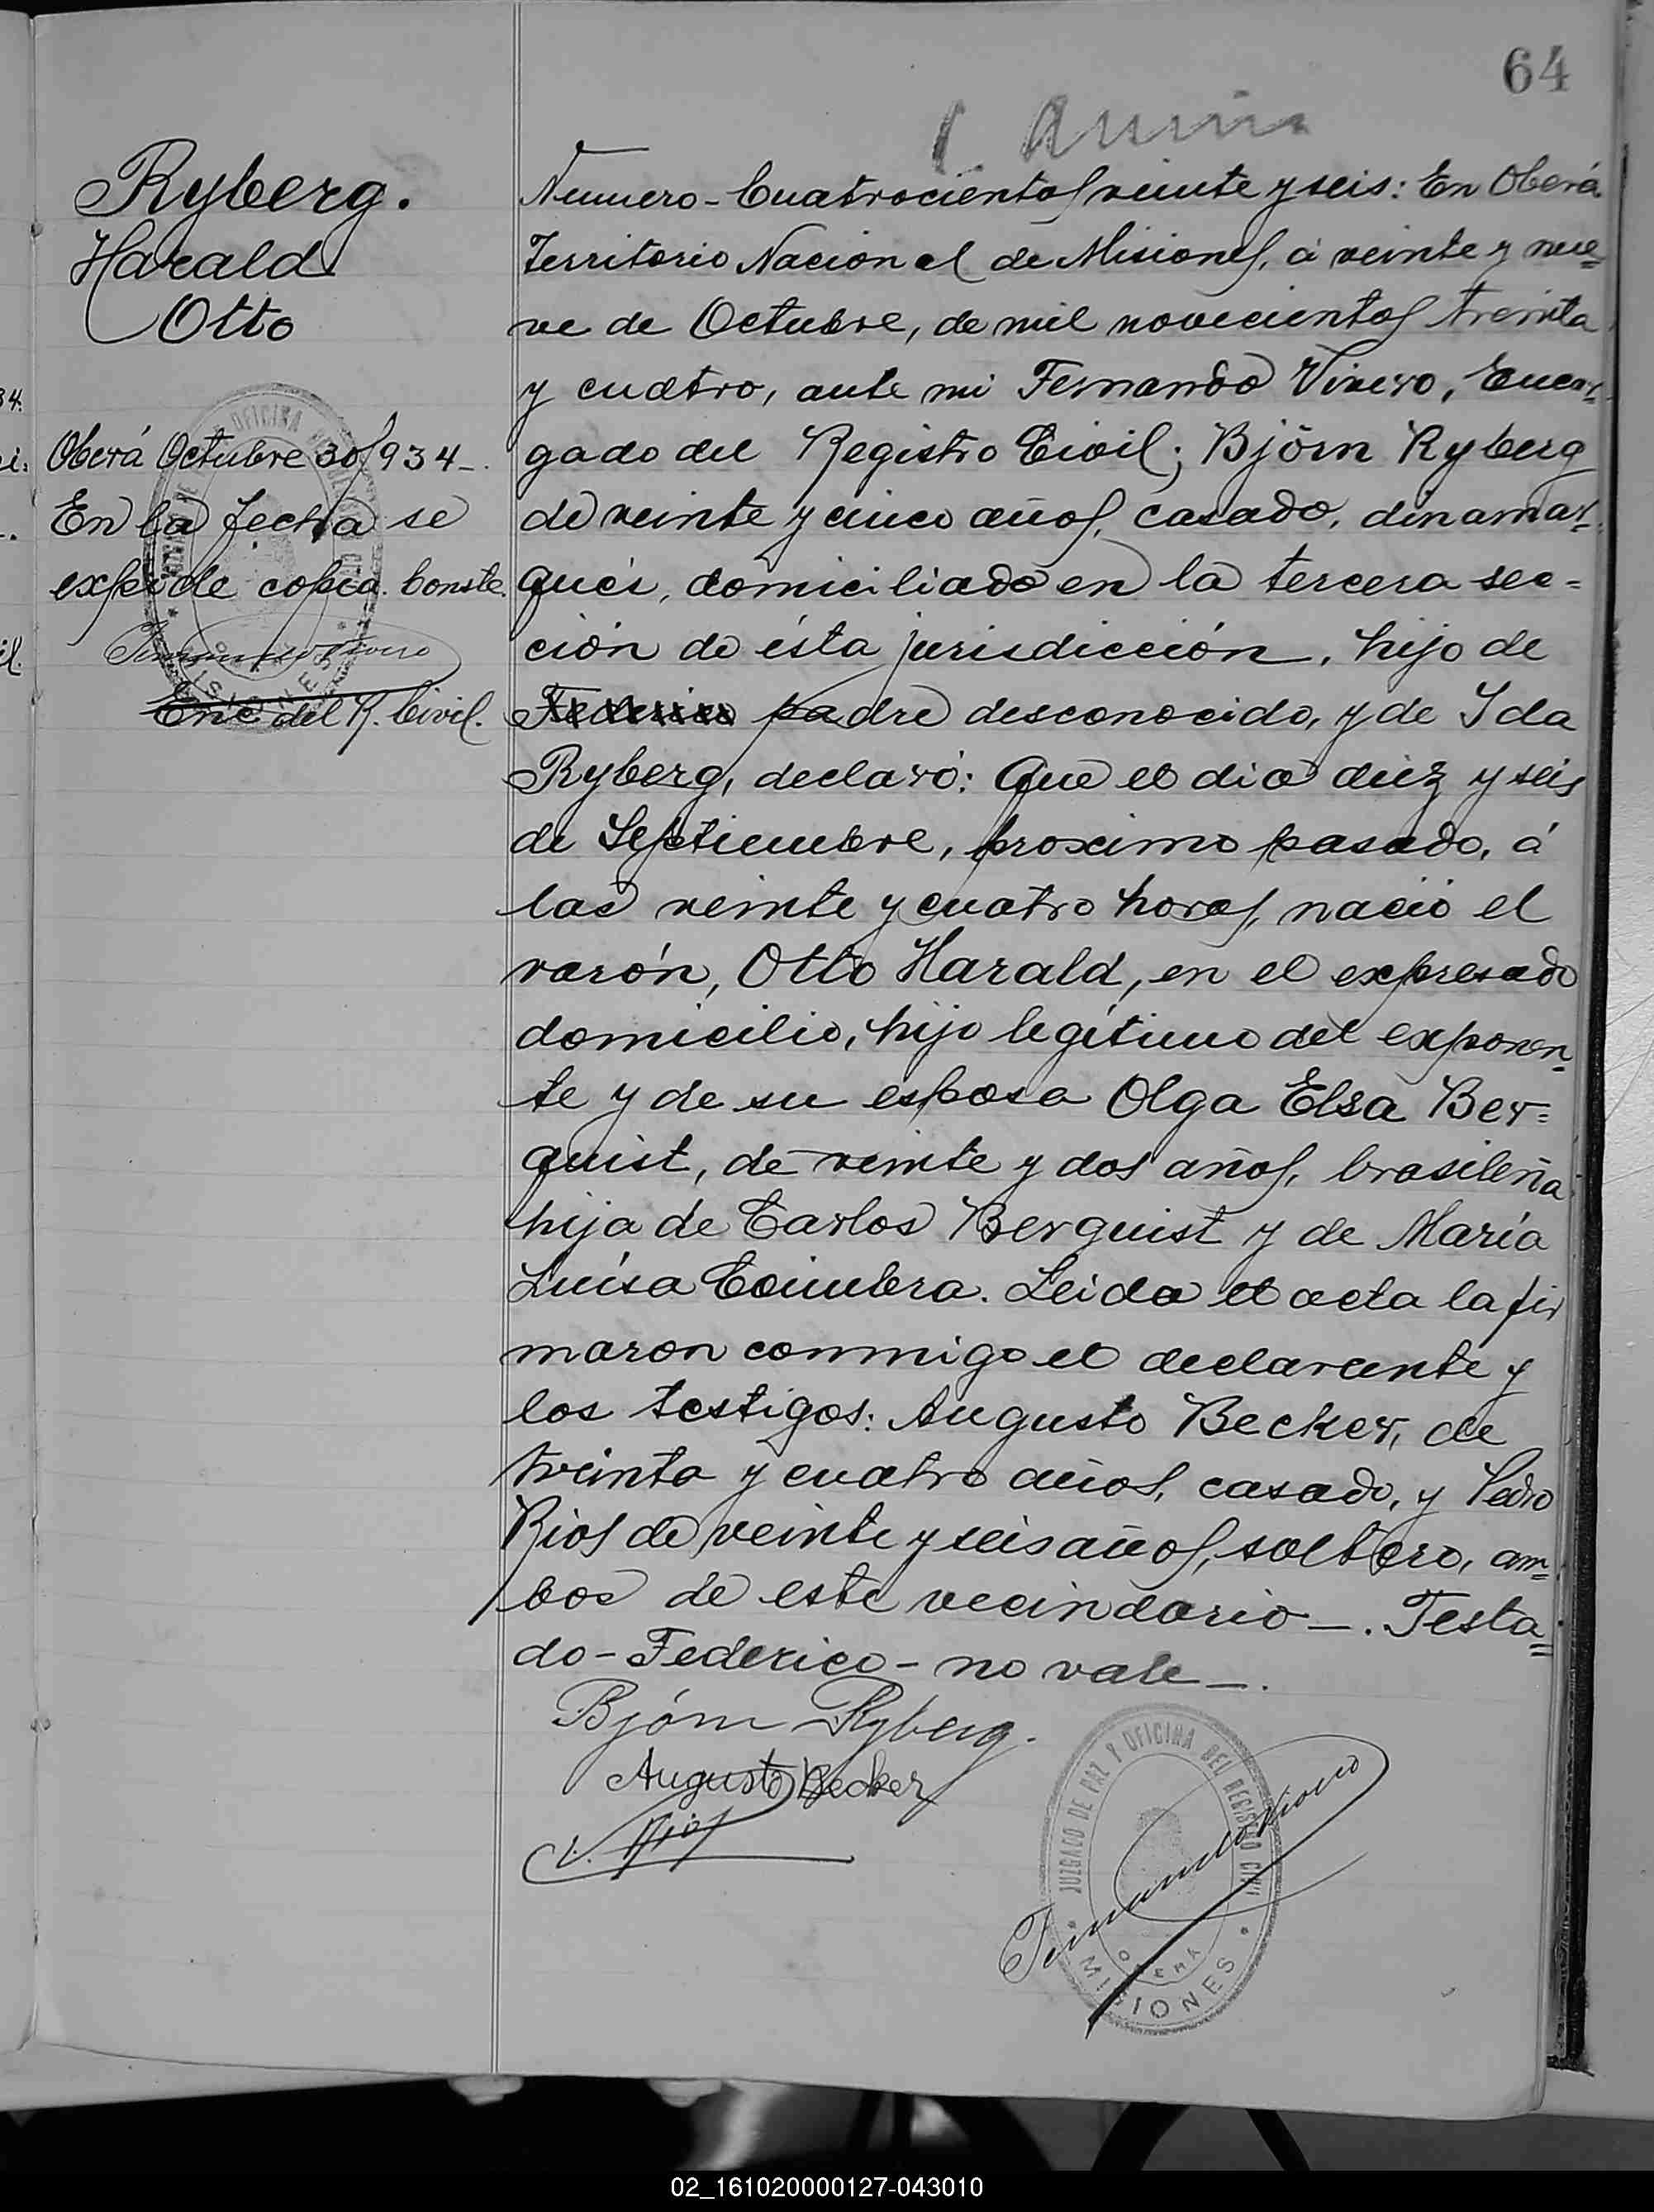 64
Ryberg.
Harald
Otto
Oberá Octubre 30/934-.
En la fecha se
expide copia. Conste.
Fernando Vivero
Enc del R. Civil.
Numero-Cuatrocientos veinte y seis: En Oberá.
Territorio Nacional de Misiones, á veinte y nue=
ve de Octubre, de mil novecientos treinta
y cuatro, ante mi Fernando Vivero, Encar=
gado del Registro Civil; Björn Ryberg
de veinte y cinco años, casado, dinamar=
qués, domiciliado en la tercera sec=
ción de ésta jurisdicción, hijo de
Federico padre desconocido, y de Ida
Ryberg, declaró: Que el dia diez y seis
de Septiembre, proximo pasado, á
las veinte y cuatro horas, nació el
varón, Otto Harald, en el expresado
domicilio, hijo legítimo del exponen=
te y de su esposa Olga Elsa Ber=
quist, de veinte y dos años, brasileña
hija de Carlos Berquist y de María
Luísa Coimbra. Leida el acta la fir
maron conmigo el declarante y
los testigos: Augusto Becker, de
treinta y cuatro años, casado, y Pedro
Rios de veinte y seis años, soltero, am=
bos de este vecindario-. Testa=
do-Federico-no vale-.
Björn Ryberg.
Augusto Becker
Rios
JUZGADO DE PAZ Y OFICINA DEL REGISTRO CIVIL
OBERÁ
MISIONES
Fernando Vivero
02_161020000127-043010